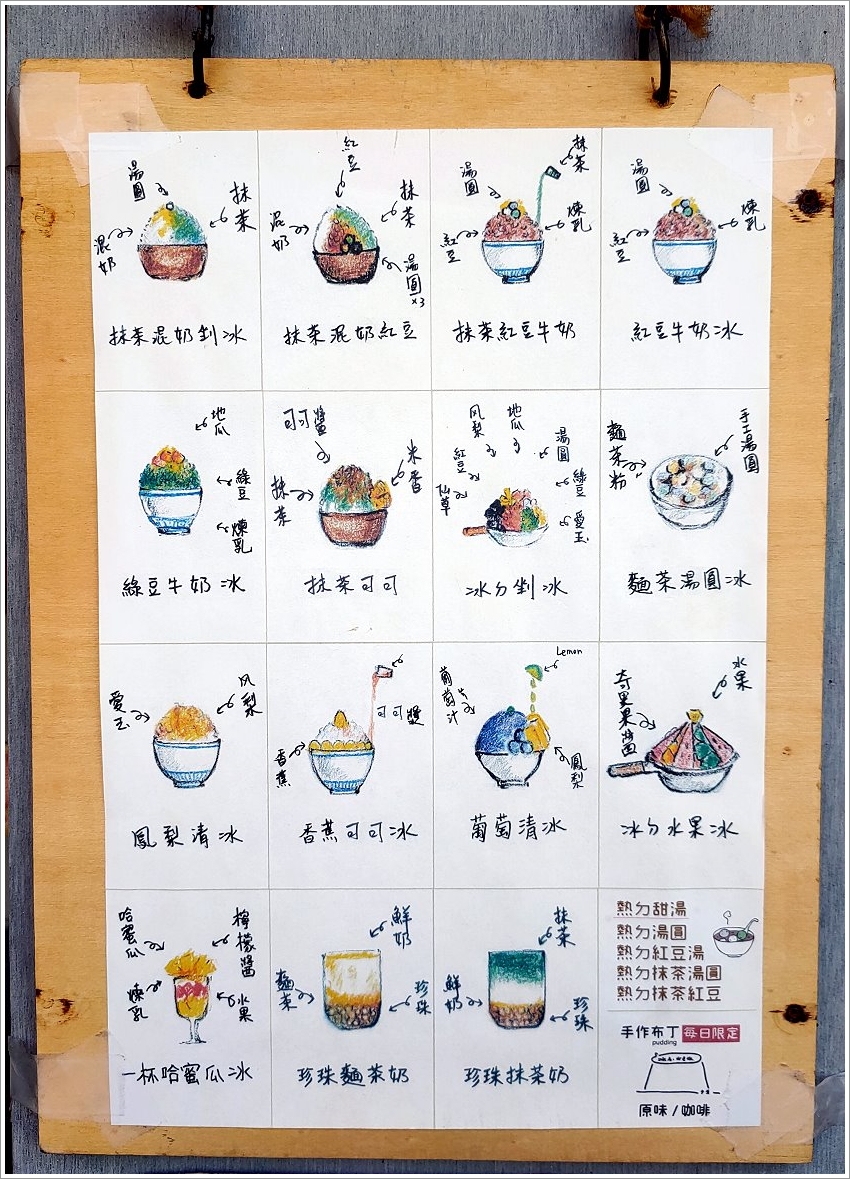 湯圓
抹茶
混奶
抹茶混奶剉冰
紅豆
抹茶
混奶
湯圓x3
抹茶混奶紅豆
抹茶
湯圓
煉乳
紅豆
抹茶紅豆牛奶
湯圓
煉乳
紅豆
紅豆牛奶冰
地瓜
綠豆
煉乳
綠豆牛奶冰
可可醬
米香
抹茶
抹茶可可
风梨
地瓜
湯圓
紅豆
綠豆
仙草
愛玉
冰ㄉ剉冰
手工湯圓
麵茶粉
麵茶湯圓冰
愛玉
风梨
鳳梨清冰
可可醬
香蕉
香蕉可可冰
Lemon
葡萄汁
鳳梨
葡萄清冰
水果
奇異果醬
冰ㄉ水果冰
哈蜜瓜
檸檬醬
煉乳
水果
一杯哈蜜瓜冰
鮮奶
麵茶
珍珠
珍珠麵茶奶
抹茶
鮮奶
珍珠
珍珠抹茶奶
熱ㄉ甜湯
熱ㄉ湯圓
熱ㄉ紅豆湯
熱ㄉ抹茶湯圓
熱ㄉ抹茶紅豆
手作布丁 每日限定
pudding
原味 / 咖啡